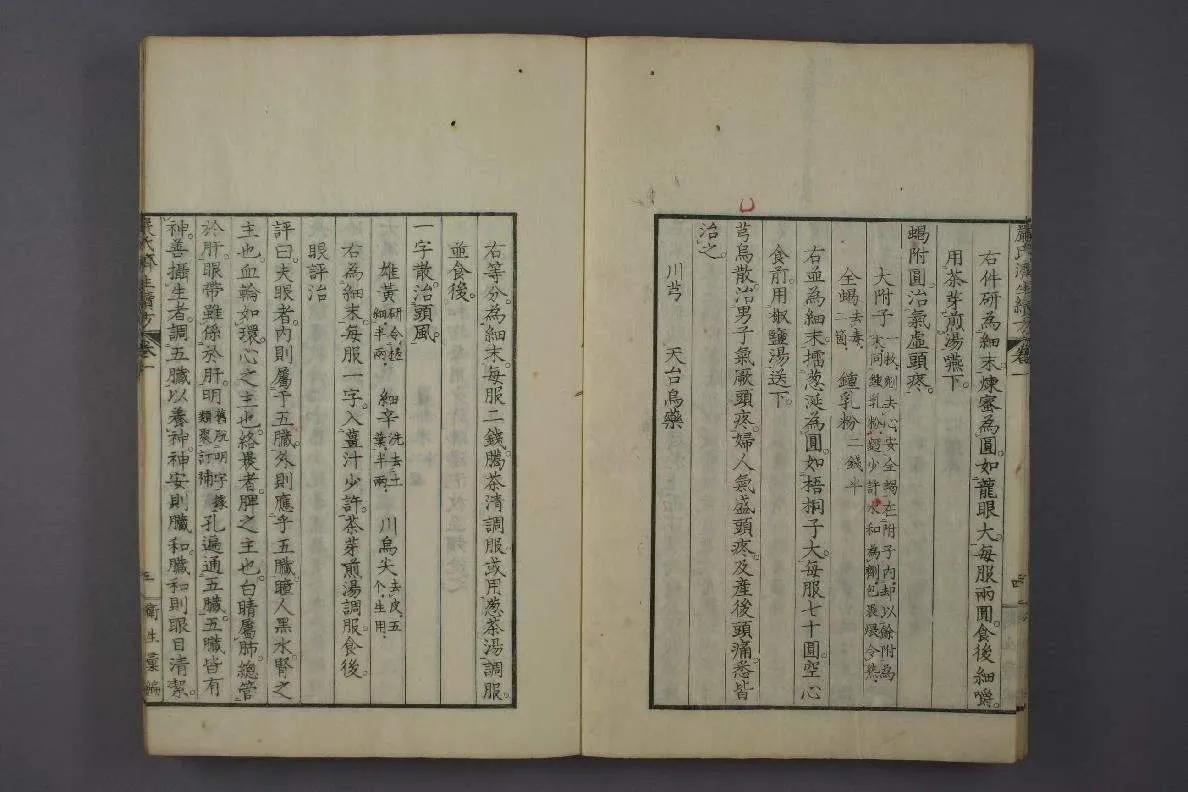 嚴氏濟生續方 卷一
右件研為細末煉蜜為圓。如龍眼大。每服兩圓。食後細嚼。
用茶芽煎湯嚥下。
蝎附圓治氣虛頭疼。
大附子 一枚剜去心安全蝎在附子內却以餘附為
末同鍾乳粉麪少許水和為劑包裹煨令熟
全蝎 去毒二箇 鍾乳粉 二錢半
右並為細末擂葱涎為圓。如梧桐子大。每服七十圓。空心
食前。用椒鹽湯送下。
芎烏散。治男子氣厥頭疼。婦人氣盛頭疼。及產後頭痛。悉皆
治之。
川芎 天台烏藥
四
右等分。為細末。每服二錢。臈茶清調服。或用葱茶湯調服。
並食後。
一字散。治頭風。
雄黃 研令
細半兩 細辛 洗去土
葉半兩 川烏尖 去皮五
个生用
右為細末。每服一字。入薑汁少許。茶芽煎湯調服。食後。
眼評治
評曰。夫眼者。內則屬乎五臟。外則應乎五臟。瞳人黑水。腎之
主也。血輪如環。心之主也。絡裹者。脾之主也。白睛屬肺。總管
於肝。眼帶雖係於肝。明 舊脫明字據
類聚訂補 孔遍通五臟。五臟皆有
神。善攝生者。調五臟以養神。神安則臟和。臟和則眼目清潔。
嚴氏濟生續方 卷一
三
衛生彙編